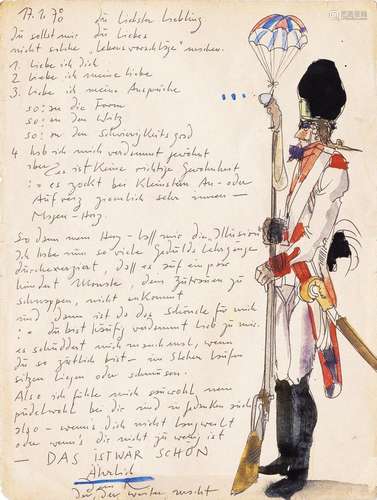 17.1.70 Du liebster Liebling
Du sollst mir du Liebes
nicht solche "Lebensvorschläge" machen.
1. Liebe ich dich
2 Liebe ich meine Liebe
3. Liebe ich meine Ansprüche
so: an die Form
so: an den Witz
so: an den Schwierigkeitsgrad
4 hab ich mich verdammt gewöhnt
aber Es ist keine richtige Gewohnheit
: es zockt bei Kleinstem An- oder
Aufreiz ziemlich sehr innen —
Magen-Herz.
So dem mein Herz - laß mir die Illusion
Ich habe nun so viele Geduldslehrgänge
durchexerziert, daß es auf ein paar
hundert Monate, dem Zuträuen zu
schnappen, nicht ankommt
und, dann ist da das Schöne für mich
: du bist häufig verdammt lieb zu mir.
es schüddert mich manchmal, wenn
du so zärtlich bist - im Stehen laufen
sitzen liegen oder schmusen.
Also ich fühle mich sauwohl mein
pudelwohl bei dir und in Gedanken sich
also - wenn's dich nicht langweilt
oder wenn's dir nicht zu wenig ist
— DAS IST WÄR SCHÖN
Ährlich
dein
der, der weiter macht